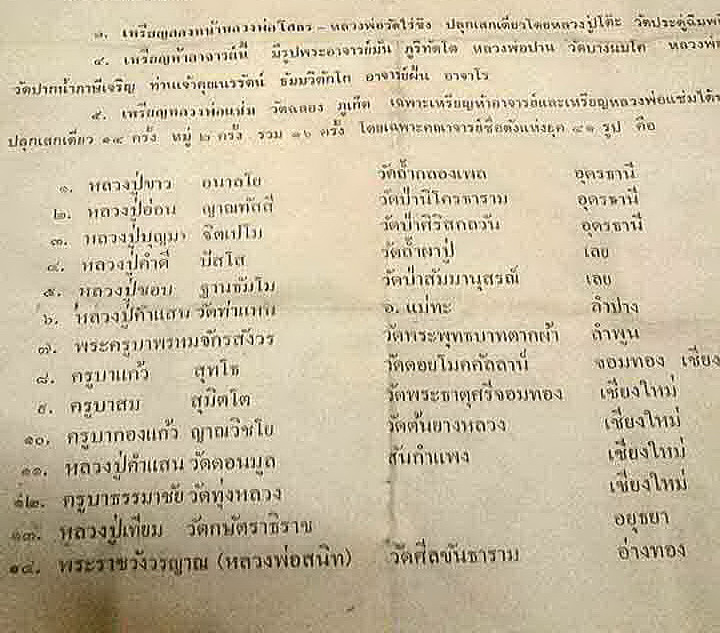 ๓. เหรียญสองหน้าหลวงพ่อโสธร – หลวงพ่อวัดไร่ขิง ปลุกเสกเดี่ยวโดยหลวงปู่โต๊ะ วัดประดู่ฉิมพลี
๔. เหรียญห้าอาจารย์นี้ มีรูปพระอาจารย์มั่น ภูริทัตโต หลวงพ่อปาน วัดบางนมโค หลวงพ่อ
วัดปากน้ำภาษีเจริญ ท่านเจ้าคุณนรรัตน์ ธัมมวิตักโก อาจารย์ฝั้น อาจาโร
๕. เหรียญหลวงพ่อแช่ม วัดฉลอง ภูเก็ต เฉพาะเหรียญห้าอาจารย์และเหรียญหลวงพ่อแช่มได้
ปลุกเสกเดี่ยว ๑๔ ครั้ง หมู่ ๒ ครั้ง รวม ๑๖ ครั้ง โดยเฉพาะคณาจารย์ชื่อดังแห่งยุค ๔๑ รูป คือ
๑. หลวงปู่ขาว อนาลโย วัดถ้ำกลองเพล อุดรธานี
๒. หลวงปู่อ่อน ญาณสิริ วัดป่านิโครธาราม อุดรธานี
๓. หลวงปู่บุญมา ฐิตเปโม วัดป่าสิริสาลวัน อุดรธานี
๔. หลวงปู่คำดี ปภาโส วัดถ้ำผาปู่ เลย
๕. หลวงปู่ชอบ ฐานธัมโม วัดป่าสัมมานุสรณ์ เลย
๖. หลวงปู่คำแสน วัดท่าแหน อ. แม่ทะ ลำปาง
๗. พระครูบาพรหมจักรสังวร วัดพระพุทธบาทตากผ้า ลำพูน
๘. ครูบาแก้ว สุทโธ วัดดอยโมคคัลลาน์ จอมทอง เชียง
๙. ครูบาสม สุมิตโต วัดพระธาตุศรีจอมทอง เชียงใหม่
๑๐. ครูบากองแก้ว ญาณวิชโย วัดต้นยางหลวง เชียงใหม่
๑๑. หลวงปู่คำแสน วัดดอนมูล สันกำแพง เชียงใหม่
๑๒. ครูบาธรรมาชัย วัดทุ่งหลวง เชียงใหม่
๑๓. หลวงปู่เทียม วัดกษัตราธิราช อยุธยา
๑๔. พระราชวังวรญาณ (หลวงพ่อสนิท) วัดศีลขันธาราม อ่างทอง